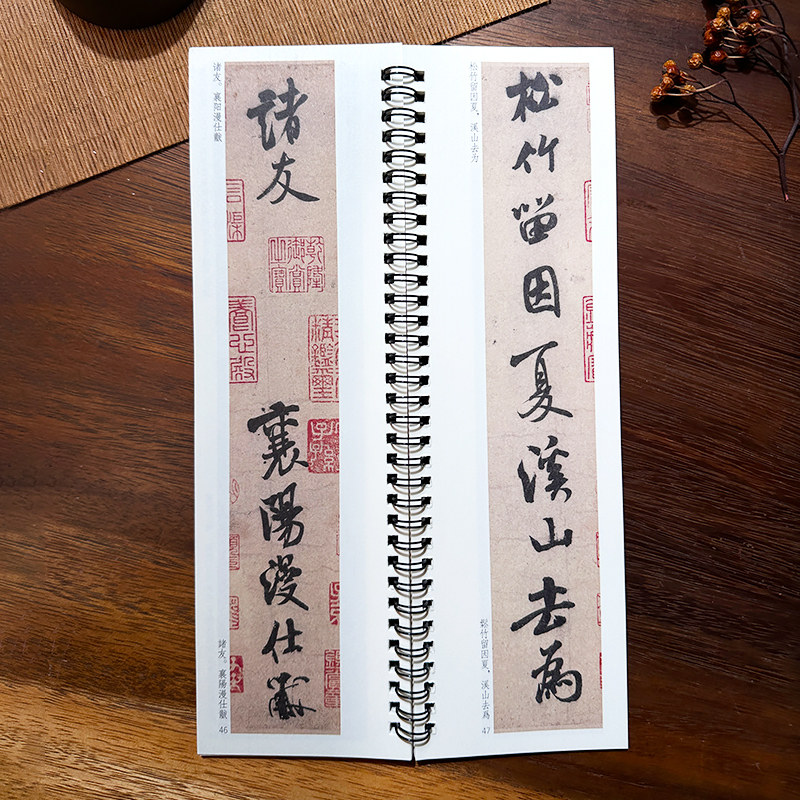 诸友。襄阳漫仕黻
諸友
襄陽漫仕黻
乾隆御賞之寶
養心殿
諸友。襄陽漫仕黻
46
松竹留因夏,溪山去为
松竹留因夏溪山去為
松竹留因夏,溪山去爲
47